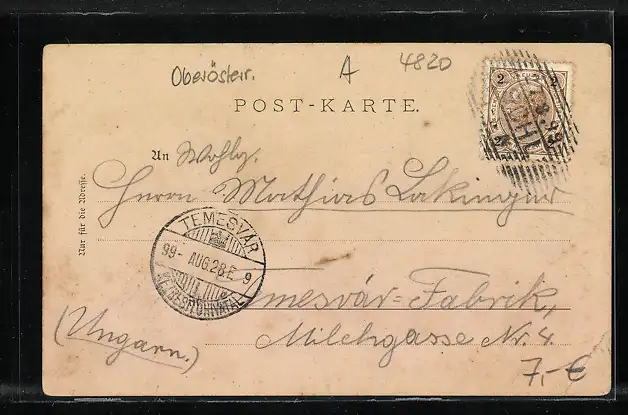 Oberösterr. A 4820
POST-KARTE.
2 2
ISCHL
An Wohlg.
Herrn Mathias Lakinger
Nur für die Adresse.
TEMESVÁR
99- AUG. 28 E. 9
Temesvár=Fabrik,
(Ungarn.)
Milchgasse Nr. 4.
7,- €